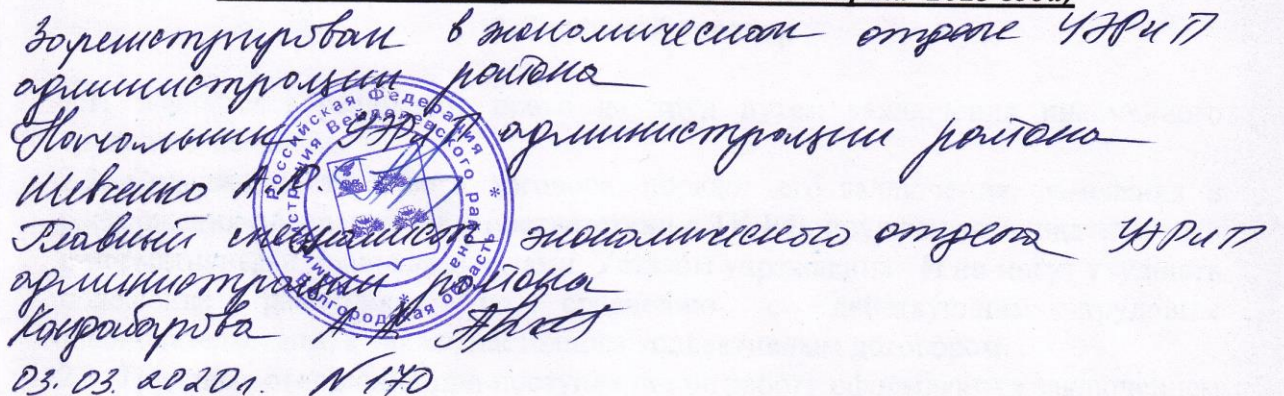 Зарегистрирован в экономическом отделе УЭРиП
администрации района
Начальник УЭРиП администрации района
Шевченко А.В.
Главный специалист экономического отдела УЭРиП
администрации района
Кандабарова А.А.
03.03.2020г. №170
Российская Федерация
Администрация Вейделевского района
Белгородская область